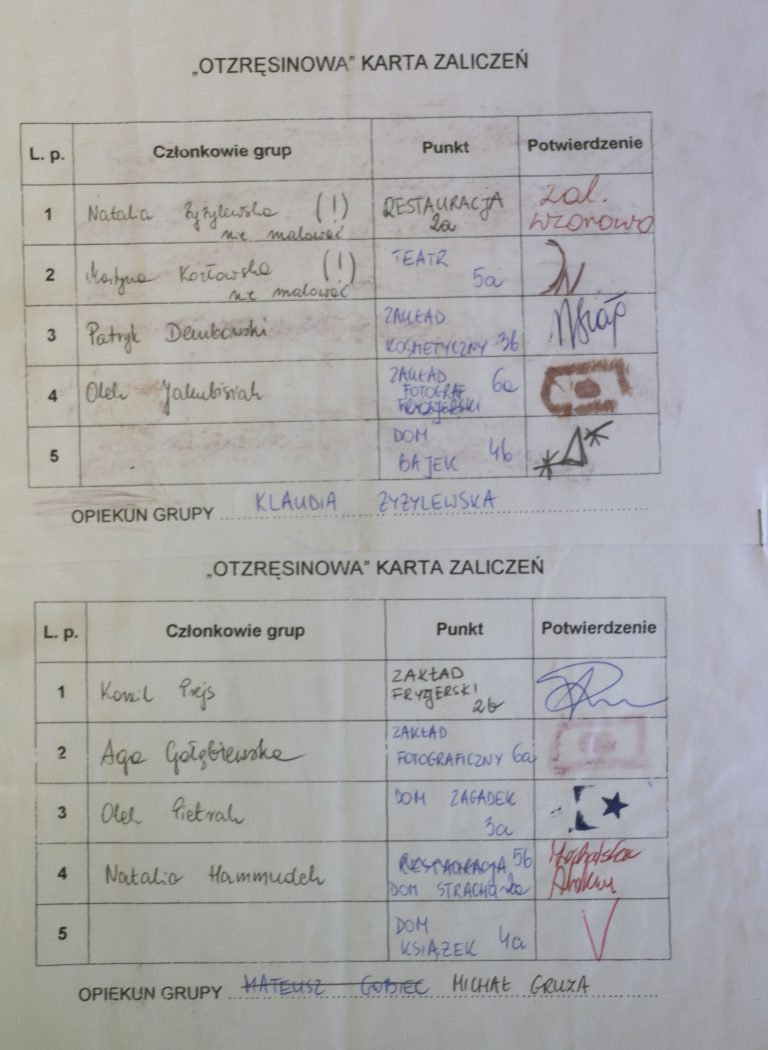 „OTZRĘSINOWA” KARTA ZALICZEŃ
L. p. Członkowie grup Punkt Potwierdzenie
1 Natalia Żyżylewska (!) RESTAURACJA zal.
nie malować 2a wzorowo
2 Martyna Kozłowska (!) TEATR
nie malować 5a
3 Patryk Dembowski ZAKŁAD
KOSMETYCZNY 3b
4 Olek Jakubisiak ZAKŁAD 6a
FOTOGRAF
FRYZJERSKI
5 DOM
BAJEK 4b
OPIEKUN GRUPY KLAUDIA ŻYŻYLEWSKA
„OTZRĘSINOWA” KARTA ZALICZEŃ
L. p. Członkowie grup Punkt Potwierdzenie
1 Kamil Prejs ZAKŁAD
FRYZJERSKI
2b
2 Aga Gołębiewska ZAKŁAD
FOTOGRAFICZNY 6a
3 Olek Pietrak DOM ZAGADEK
3a
4 Natalia Hammudeh RESTAURACJA 5b
DOM STRACHU
5 DOM
KSIĄŻEK 4a
OPIEKUN GRUPY MATEUSZ GOBIEC MICHAŁ GRUZA